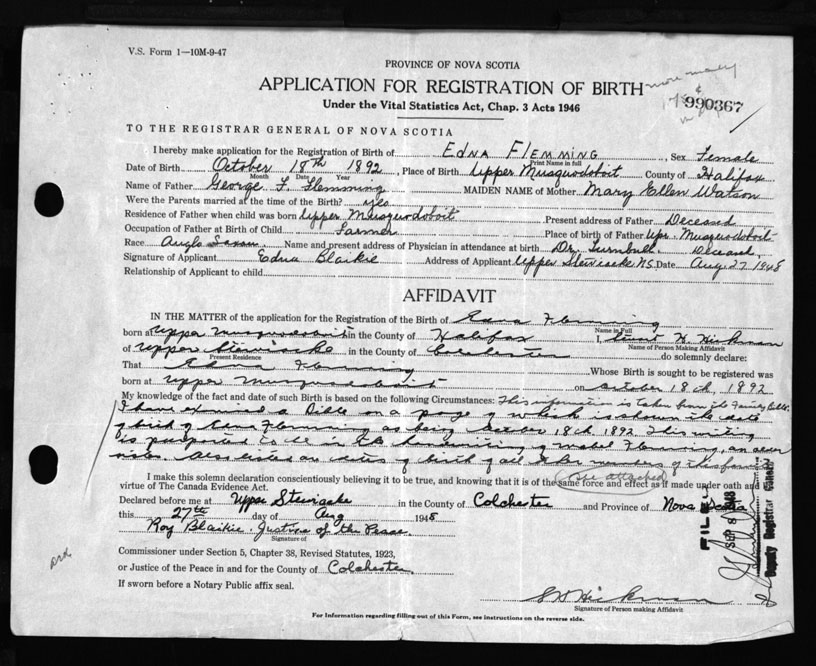 V.S. Form 1—10M-9-47
PROVINCE OF NOVA SCOTIA
APPLICATION FOR REGISTRATION OF BIRTH
990367
Under the Vital Statistics Act, Chap. 3 Acts 1946
TO THE REGISTRAR GENERAL OF NOVA SCOTIA
I hereby make application for the Registration of Birth of EDNA FLEMMING, Sex Female
Print Name in full
Date of Birth October 18th 1892, Place of Birth Upper Musquodoboit County of Halifax
Month Date Year
Name of Father George F. Flemming MAIDEN NAME of Mother Mary Ellen Watson
Were the Parents married at the time of the Birth? yes
Residence of Father when child was born Upper Musquodoboit Present address of Father Deceased
Occupation of Father at Birth of Child Farmer Place of birth of Father Upr. Musquodoboit
Race Anglo Saxon Name and present address of Physician in attendance at birth Dr. Turnbull. Deceased.
Signature of Applicant Edna Blaikie Address of Applicant Upper Stewiacke N.S. Date Aug. 27 1948
Relationship of Applicant to child
AFFIDAVIT
IN THE MATTER of the application for the Registration of the Birth of Edna Flemming
Name in Full
born at Upper Musquodoboit in the County of Halifax I, H. Hickman
Name of Person Making Affidavit
of Upper Stewiacke in the County of Colchester do solemnly declare:
Present Residence
That Edna Flemming Whose Birth is sought to be registered was
born at Upper Musquodoboit on October 18th, 1892
My knowledge of the fact and date of such Birth is based on the following Circumstances: This information is taken from the Family Bible.
I have examined a Bible on a page of which is shown the date
of birth of Edna Flemming as being October 18th 1892. This writing
is purported to be in the handwriting of Mabel Flemming, an older
sister. Also listed are dates of birth of all other members of the family
see attached
I make this solemn declaration conscientiously believing it to be true, and knowing that it is of the same force and effect as if made under oath and
virtue of The Canada Evidence Act.
Declared before me at Upper Stewiacke in the County of Colchester and Province of Nova Scotia
this 27th day of Aug 1948
Roy Blaikie. Justice of the Peace
Signature of
FILED
SEP 8 1948
Deputy Registrar General
Commissioner under Section 5, Chapter 38, Revised Statutes, 1923,
or Justice of the Peace in and for the County of Colchester
If sworn before a Notary Public affix seal.
Hickman
Signature of Person making Affidavit
For Information regarding filling out of this Form, see instructions on the reverse side.